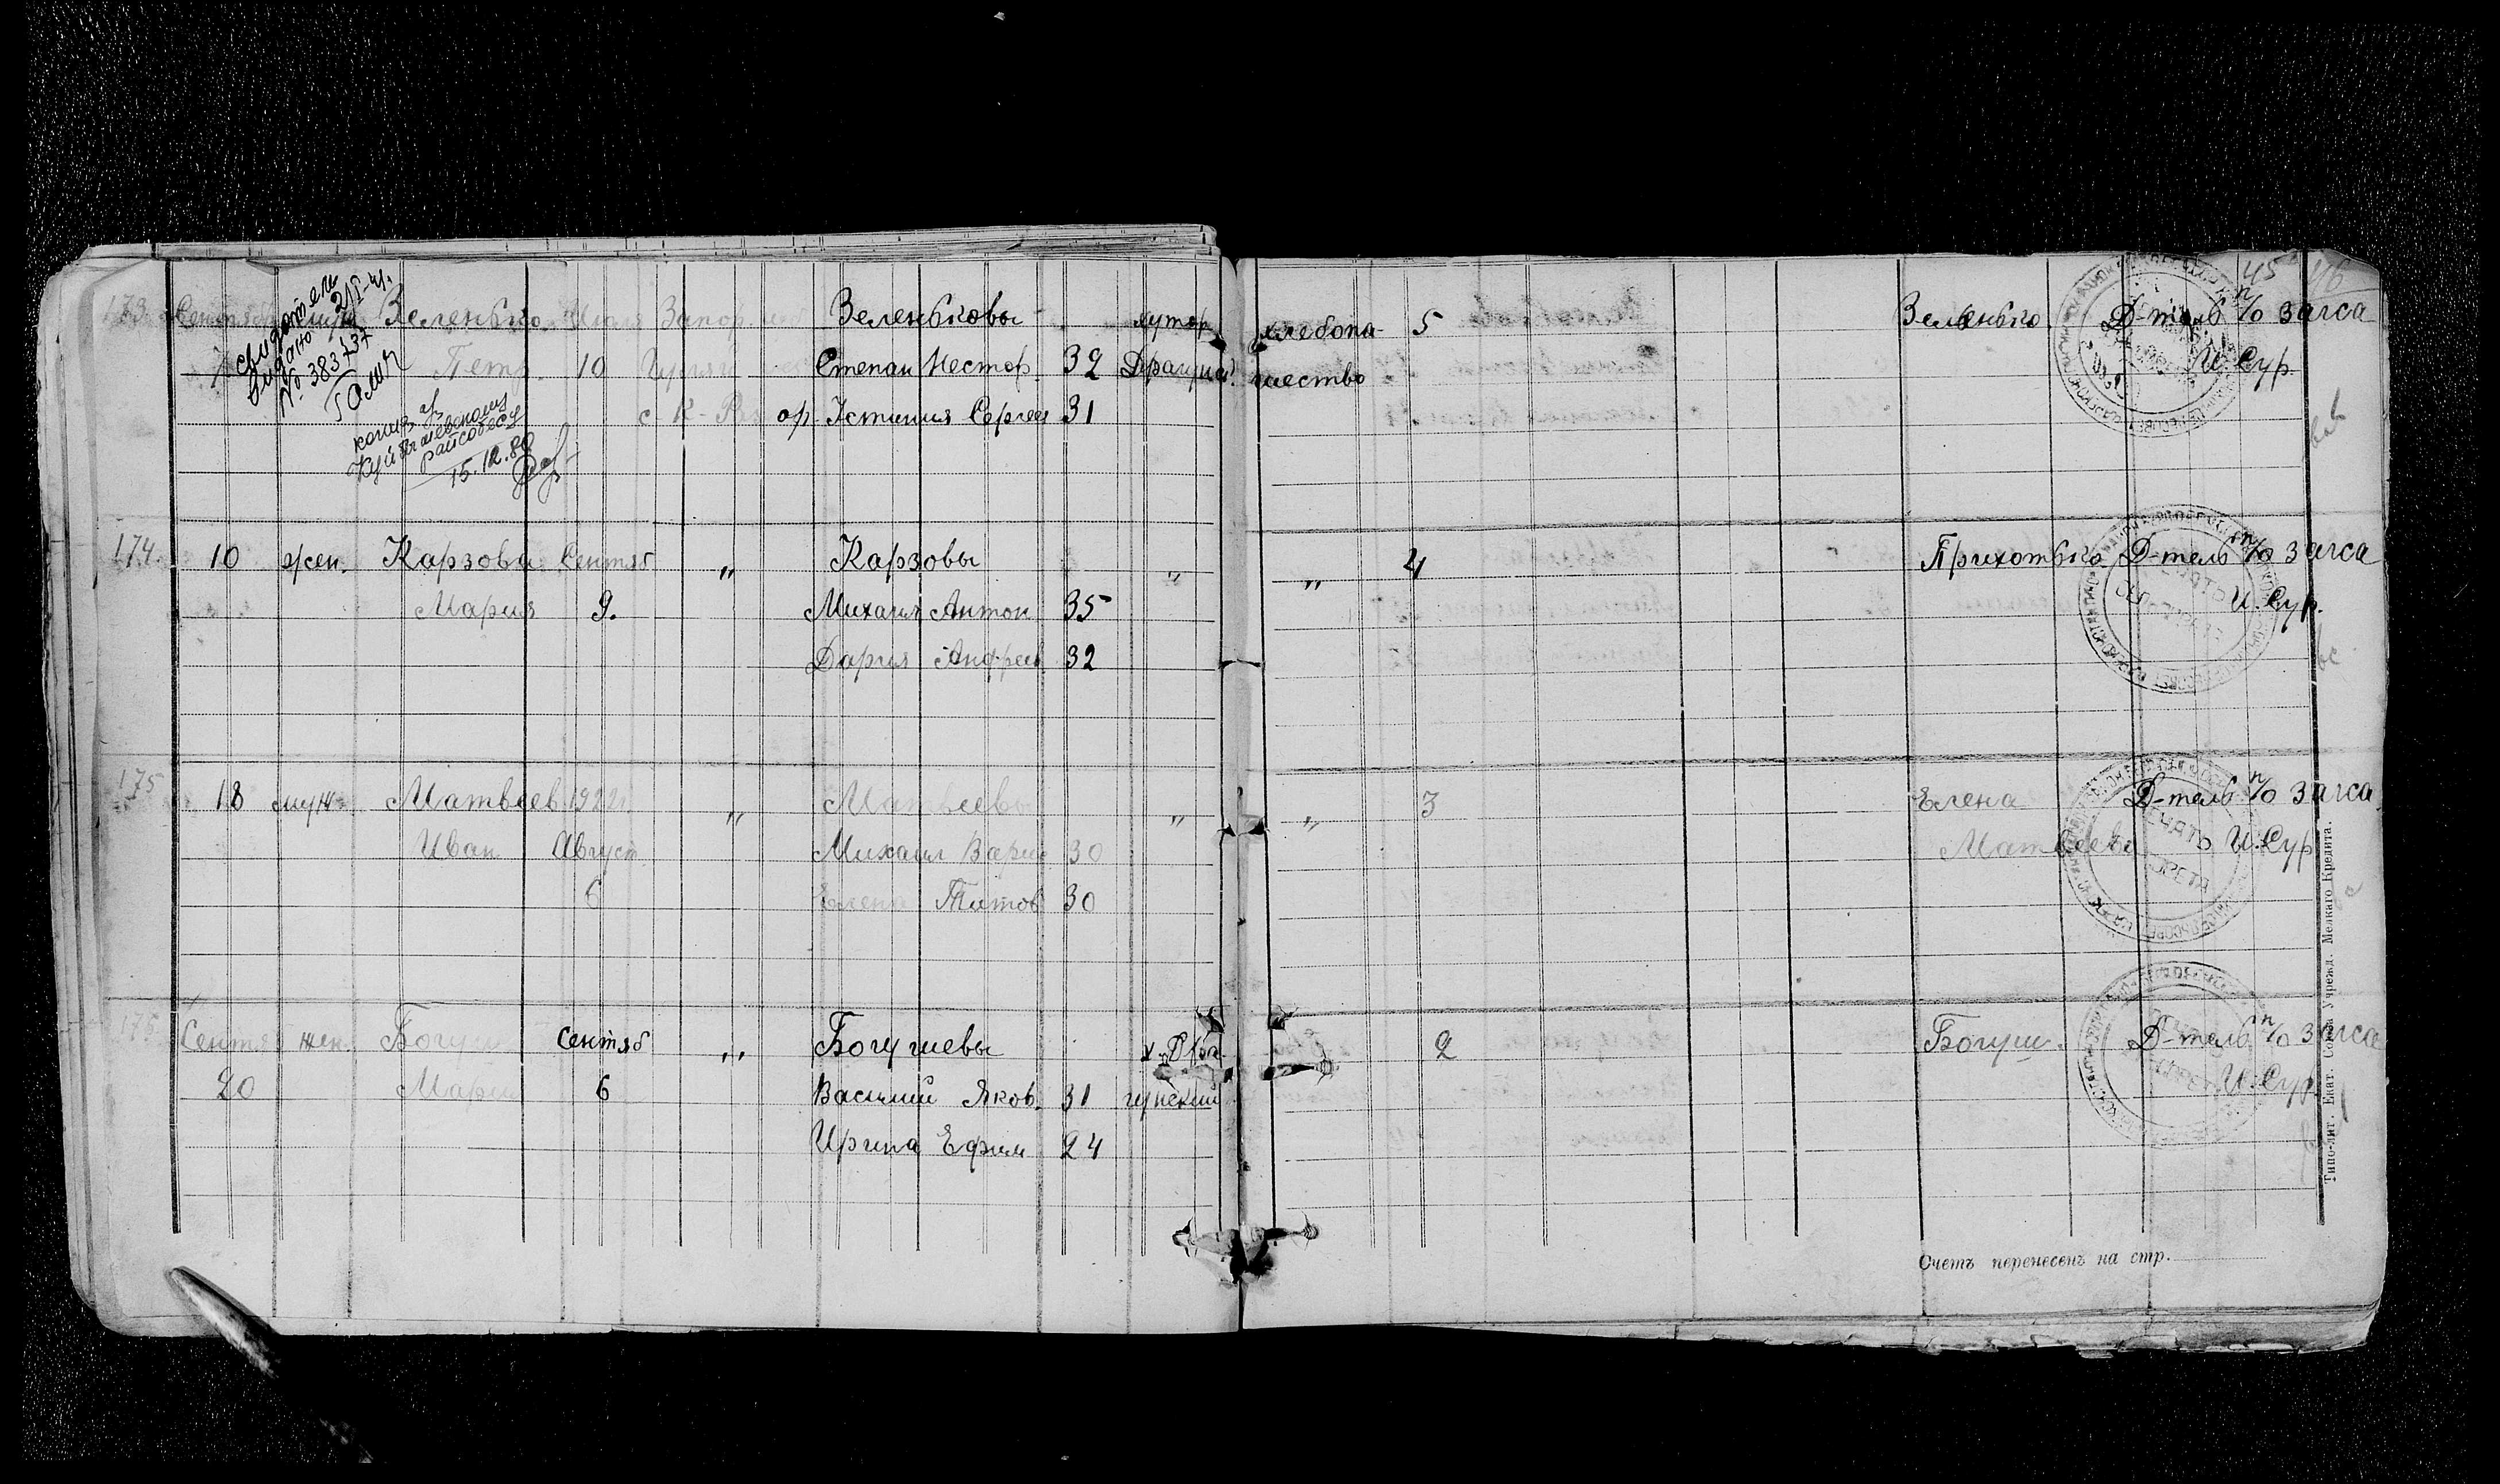 45 46
173 Сентяб муж Зеленько Июля Запор. губ Зеленьковы хутор хлебопа- 5 Зеленько Д-тель п/о загса
7 Петр 10 Степан Нестор. 32 Драгунск. шество И. Сур
с. К- ор. Устиния Сергеев 31
свидетель
выдано 21/I-41.
№ 383737
копия аз
Куйбышевскому
райсобесу
15.12.80
174. 10 жен. Карзова Сентяб „ Карзовы „ „ 4 Прихотько Д-тель п/о загса
Мария 9. „ Михаил Антон 35 И. Сур.
Дария Андреев 32
175 18 муж Матвеев 1922г. „ Матвеевы „ „ 3 Елена Д-тель п/о загса
Иван Август „ Михаил 30 Матвеева И. Сур
6 Елена Титов 30
Сентя жен. Богуш Сентяб „ Богушевы х. Дра- 2 Богуш. Д-тель п/о загса
20 Мария 6 Василий Яков. 31 гунский И. Сур.
Ирина Ефим 24
ПЕЧАТЬ
Счетъ перенесенъ на стр.
Типо-лит. Екат. Союза Учрежд. Мелкаго Кредита.